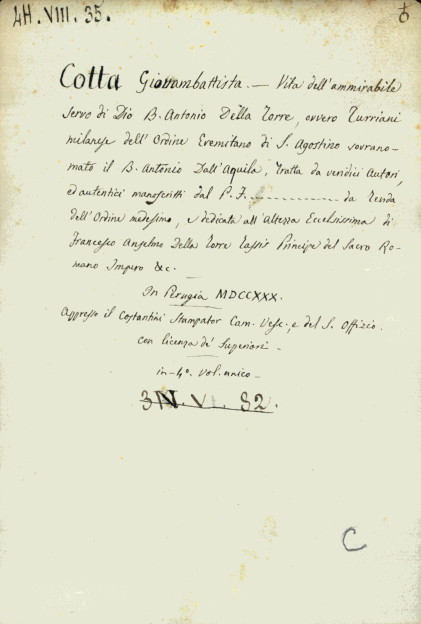 4H. VIII. 35.
6
Cotta Giovambattista. — Vita dell'ammirabile
servo di Dio B. Antonio Della Torre, ovvero Turriani
milanese dell'Ordine Eremitano di S. Agostino sovrano-
mato il B. Antonio Dall'Aquila, Tratta da veridici Autori,
ed autentici manoscritti dal P. F. .................... da Tenda
dell'Ordine medesimo, e dedicata all'Altezza Eccelsissima di
Francesco Anselmo Della Torre Tassis Principe del Sacro Ro-
mano Impero &c. —
In Perugia MDCCXXX.
Appresso il Costantini Stampator Cam. Vesc., e del S. Offizio.
con licenza de' Superiori —
in-4°. vol. unico —
3N. V. 82.
C